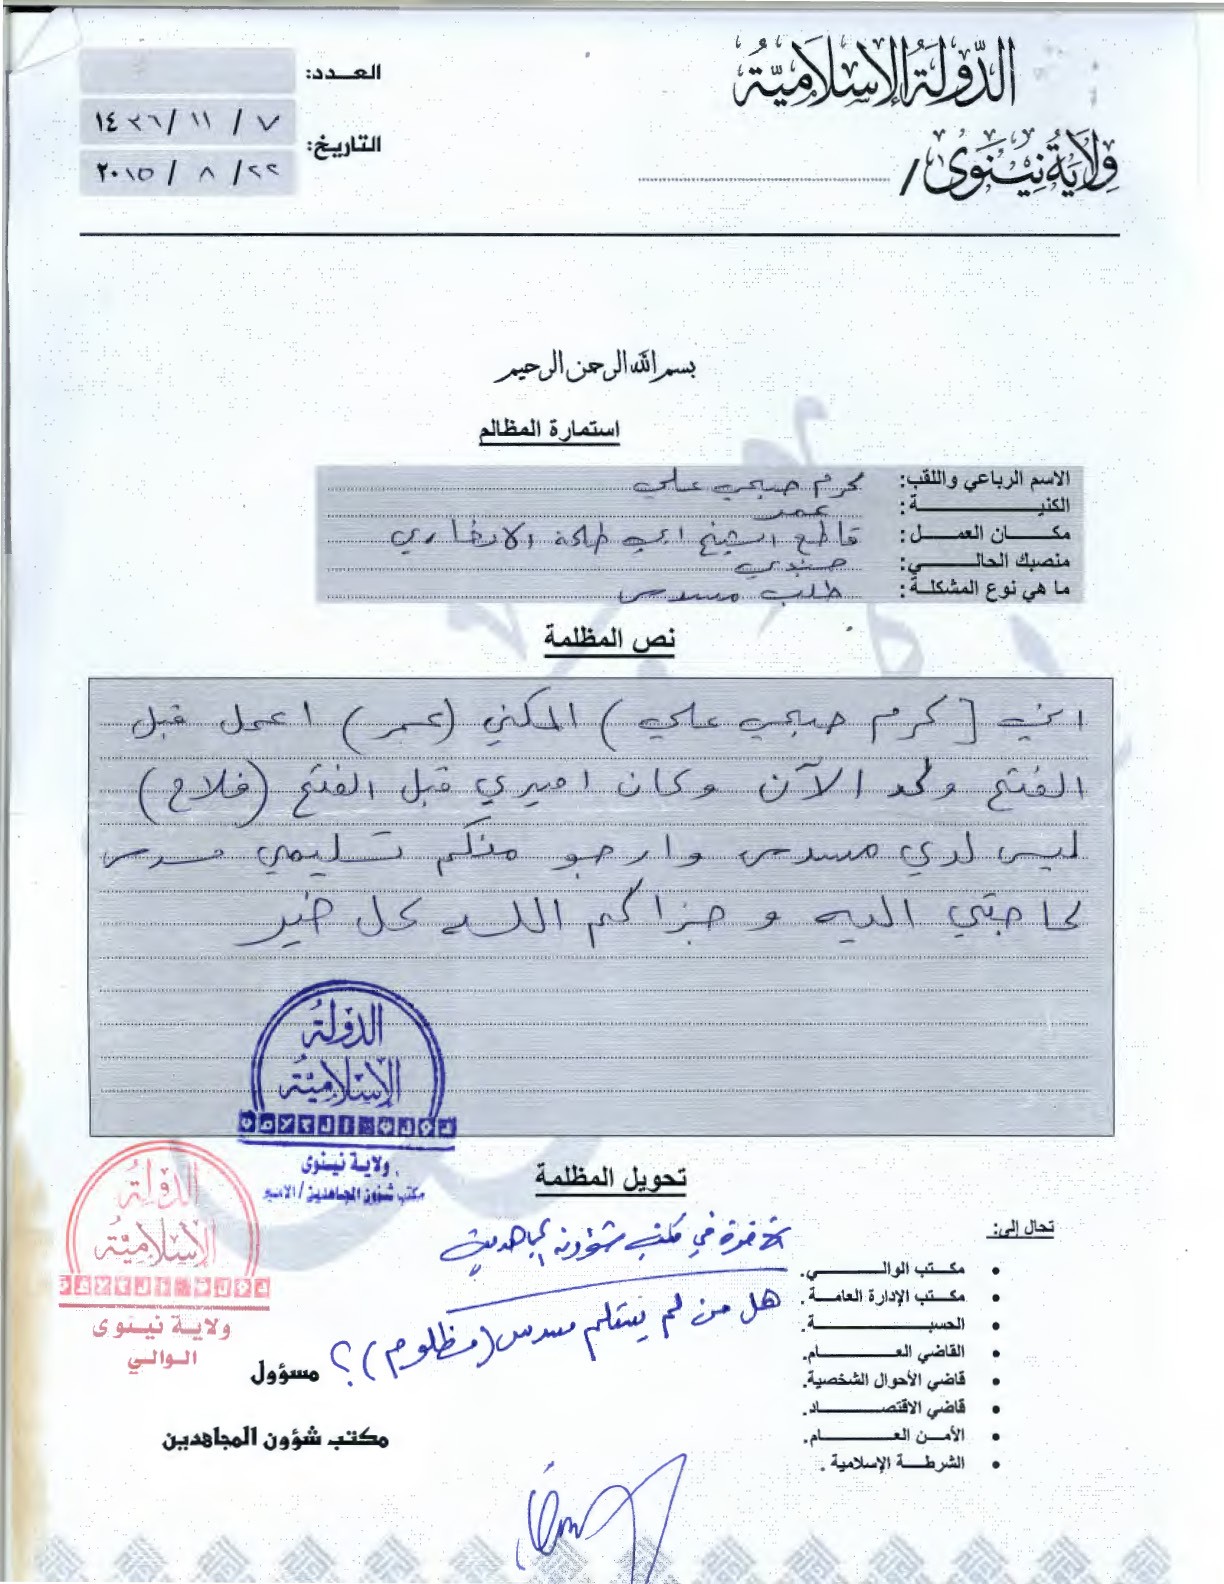 الدولة الإسلامية
ولاية نينوى /
العدد:
التاريخ:
٧ / ١١ / ١٤٣٦
٢٢ / ٨ / ٢٠١٥
بسم الله الرحمن الرحيم
استمارة المظالم
الاسم الرباعي واللقب: كرم صبحي علي
الكنيـــة: عمر
مكــان العمــل: قاطع الشيخ ابي طلحة الانصاري
منصبك الحالــي: جندي
ما هي نوع المشكلــة: طلب مسدس
نص المظلمة
اني [كرم صبحي علي) المكنى (عمر) اعمل قبل
الفتح ولحد الآن وكان اميري قبل الفتح (فلاح)
ليس لدي مسدس وارجو منكم تسليمي مسدس
لحاجتي اليه وجزاكم الله كل خير
الدولة
الإسلامية
ولاية نينوى
مكتب شؤون المجاهدين / الامير
الدولة
الإسلامية
ولاية نينوى
الوالي
تحويل المظلمة
تحال إلى:
مكـتب الوالـــي.
مكتب الإدارة العامــة.
الحسبـــة.
القاضي العـــام.
قاضي الأحوال الشخصية.
قاضي الاقتصـــاد.
الأمــن العـــام.
الشرطــة الإسلامية .
الاخوة في مكتب شؤون المجاهدين
هل من لم يستلم مسدس (مظلوم) ؟
مسؤول
مكتب شؤون المجاهدين